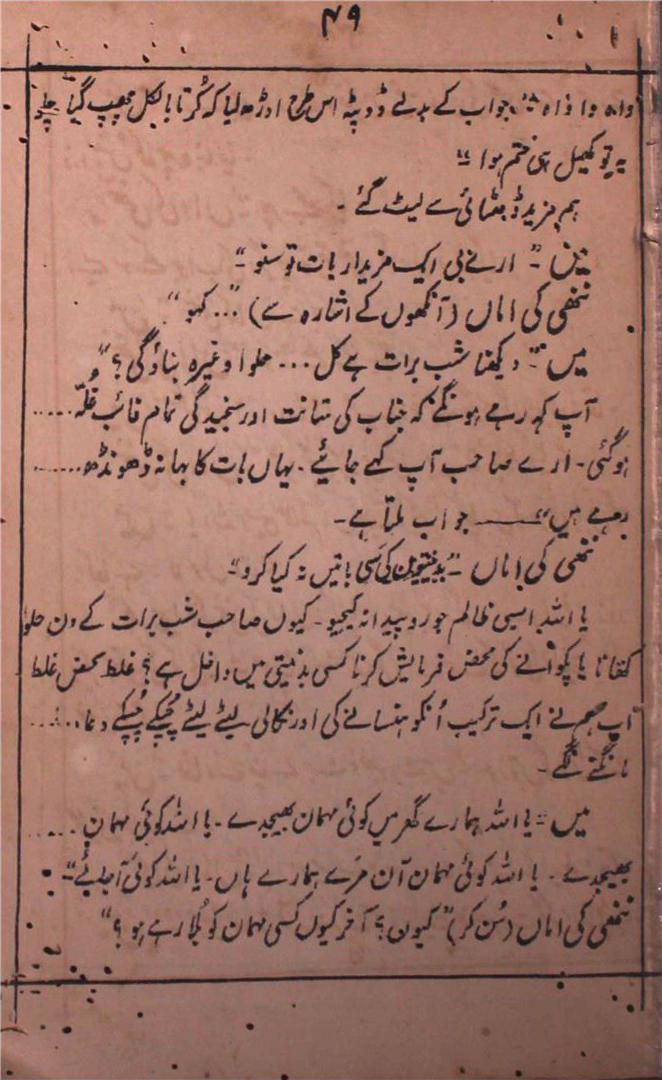 ۴۹
واہ وا واہ"، جواب کے بدلے ڈوپٹہ اس طرح اوڑھ لیا کہ کُرتا بالکل چھپ گیا چلے
یہ تو کھیل ہی ختم ہوا"
ہم مزید ڈھٹائی سے لیٹ گئے ۔
میں "۔ ارے بی ایک مزیدار بات تو سنو"۔
ننھی کی اماں (آنکھوں کے اشارہ سے) "... کہو"
میں "۔ دیکھنا شب برات ہے کل ... حلوا وغیرہ بناؤگی؟"
آپ کہہ رہے ہونگے کہ جناب کی متانت اور سنجیدگی تمام غائب غلّہ .....
ہوگئی۔ ارے صاحب آپ کہے جائیے۔ یہاں بات کا بہانہ ڈھونڈھ ......
رہے ہیں" —— جواب ملتا ہے۔
ننھی کی اماں ۔"بدنیتوں کی سی باتیں نہ کیا کرو"۔
یا اللہ ایسی ظالم جورو پیدا نہ کیجیو۔ کیوں صاحب شب برات کے دن حلوا
کھانا یا پکوانے کی محض فرمایش کرنا کسی بدنیتی میں داخل ہے؟ غلط محض غلط
اب ہم نے ایک ترکیب اُنکو ہنسانے کی اور نکالی لیٹے لیٹے چُپکے چُپکے دعا ......
مانگنے لگے۔
میں "۔ یا اللہ ہمارے گھر میں کوئی مہمان بھیجدے۔ یا اللہ کوئی مہمان ....
بھیجدے۔ یا اللہ کوئی مہمان آن مرے ہمارے ہاں۔ یا اللہ کوئی آجائے"۔
ننھی کی اماں (سُن کر) "کیوں؟ آخر کیوں کسی مہمان کو بُلا رہے ہو؟"